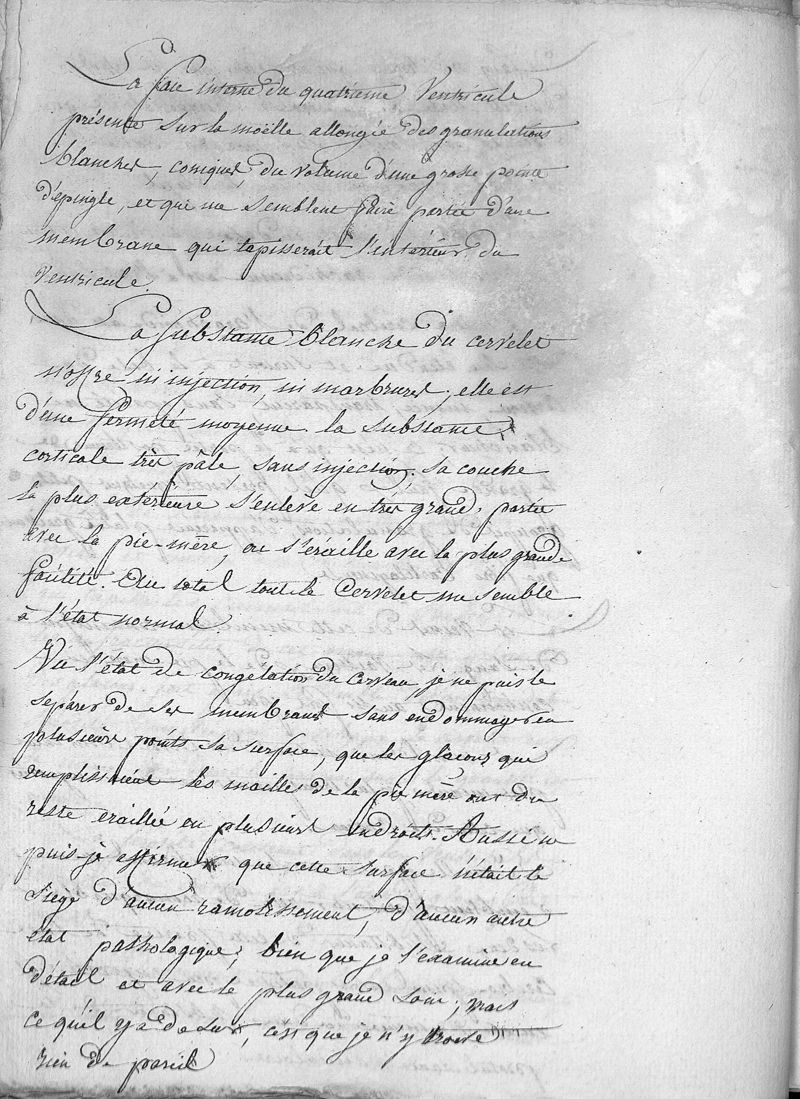 La face interne du quatrième Ventricule
présente sur la moëlle allongée des granulations
blanches, coniques, du volume d'une grosse pointe
d'épingle, et qui me semblent faire partie d'une
membrane qui tapisserait l'intérieur du
Ventricule.
La Substance blanche du cervelet
n'offre ni injection, ni marbrures, elle est
d'une fermeté moyenne la substance
corticale très pâle, sans injection, sa couche
la plus extérieure s'enlève en très grande partie
avec la pie-mère, ou s'éraille avec la plus grande
facilité. Au total tout le Cervelet me semble
à l'état normal.
Vu l'état de congélation du cerveau je ne puis le
séparer de ses membranes sans endommager en
plusieurs points sa surface, que les glaçons qui
remplissaient les mailles de la pie mère ont du
reste eraillée en plusieurs endroits. Aussi ne
puis-je affirmer que cette surface n'était le
siège d'aucun ramolissement, d'aucun autre
état pathologique, bien que je l'examine en
détail et avec le plus grand soin; mais
ce qu'il y a de sur, c'est que je n'y trouve
rien de pareil